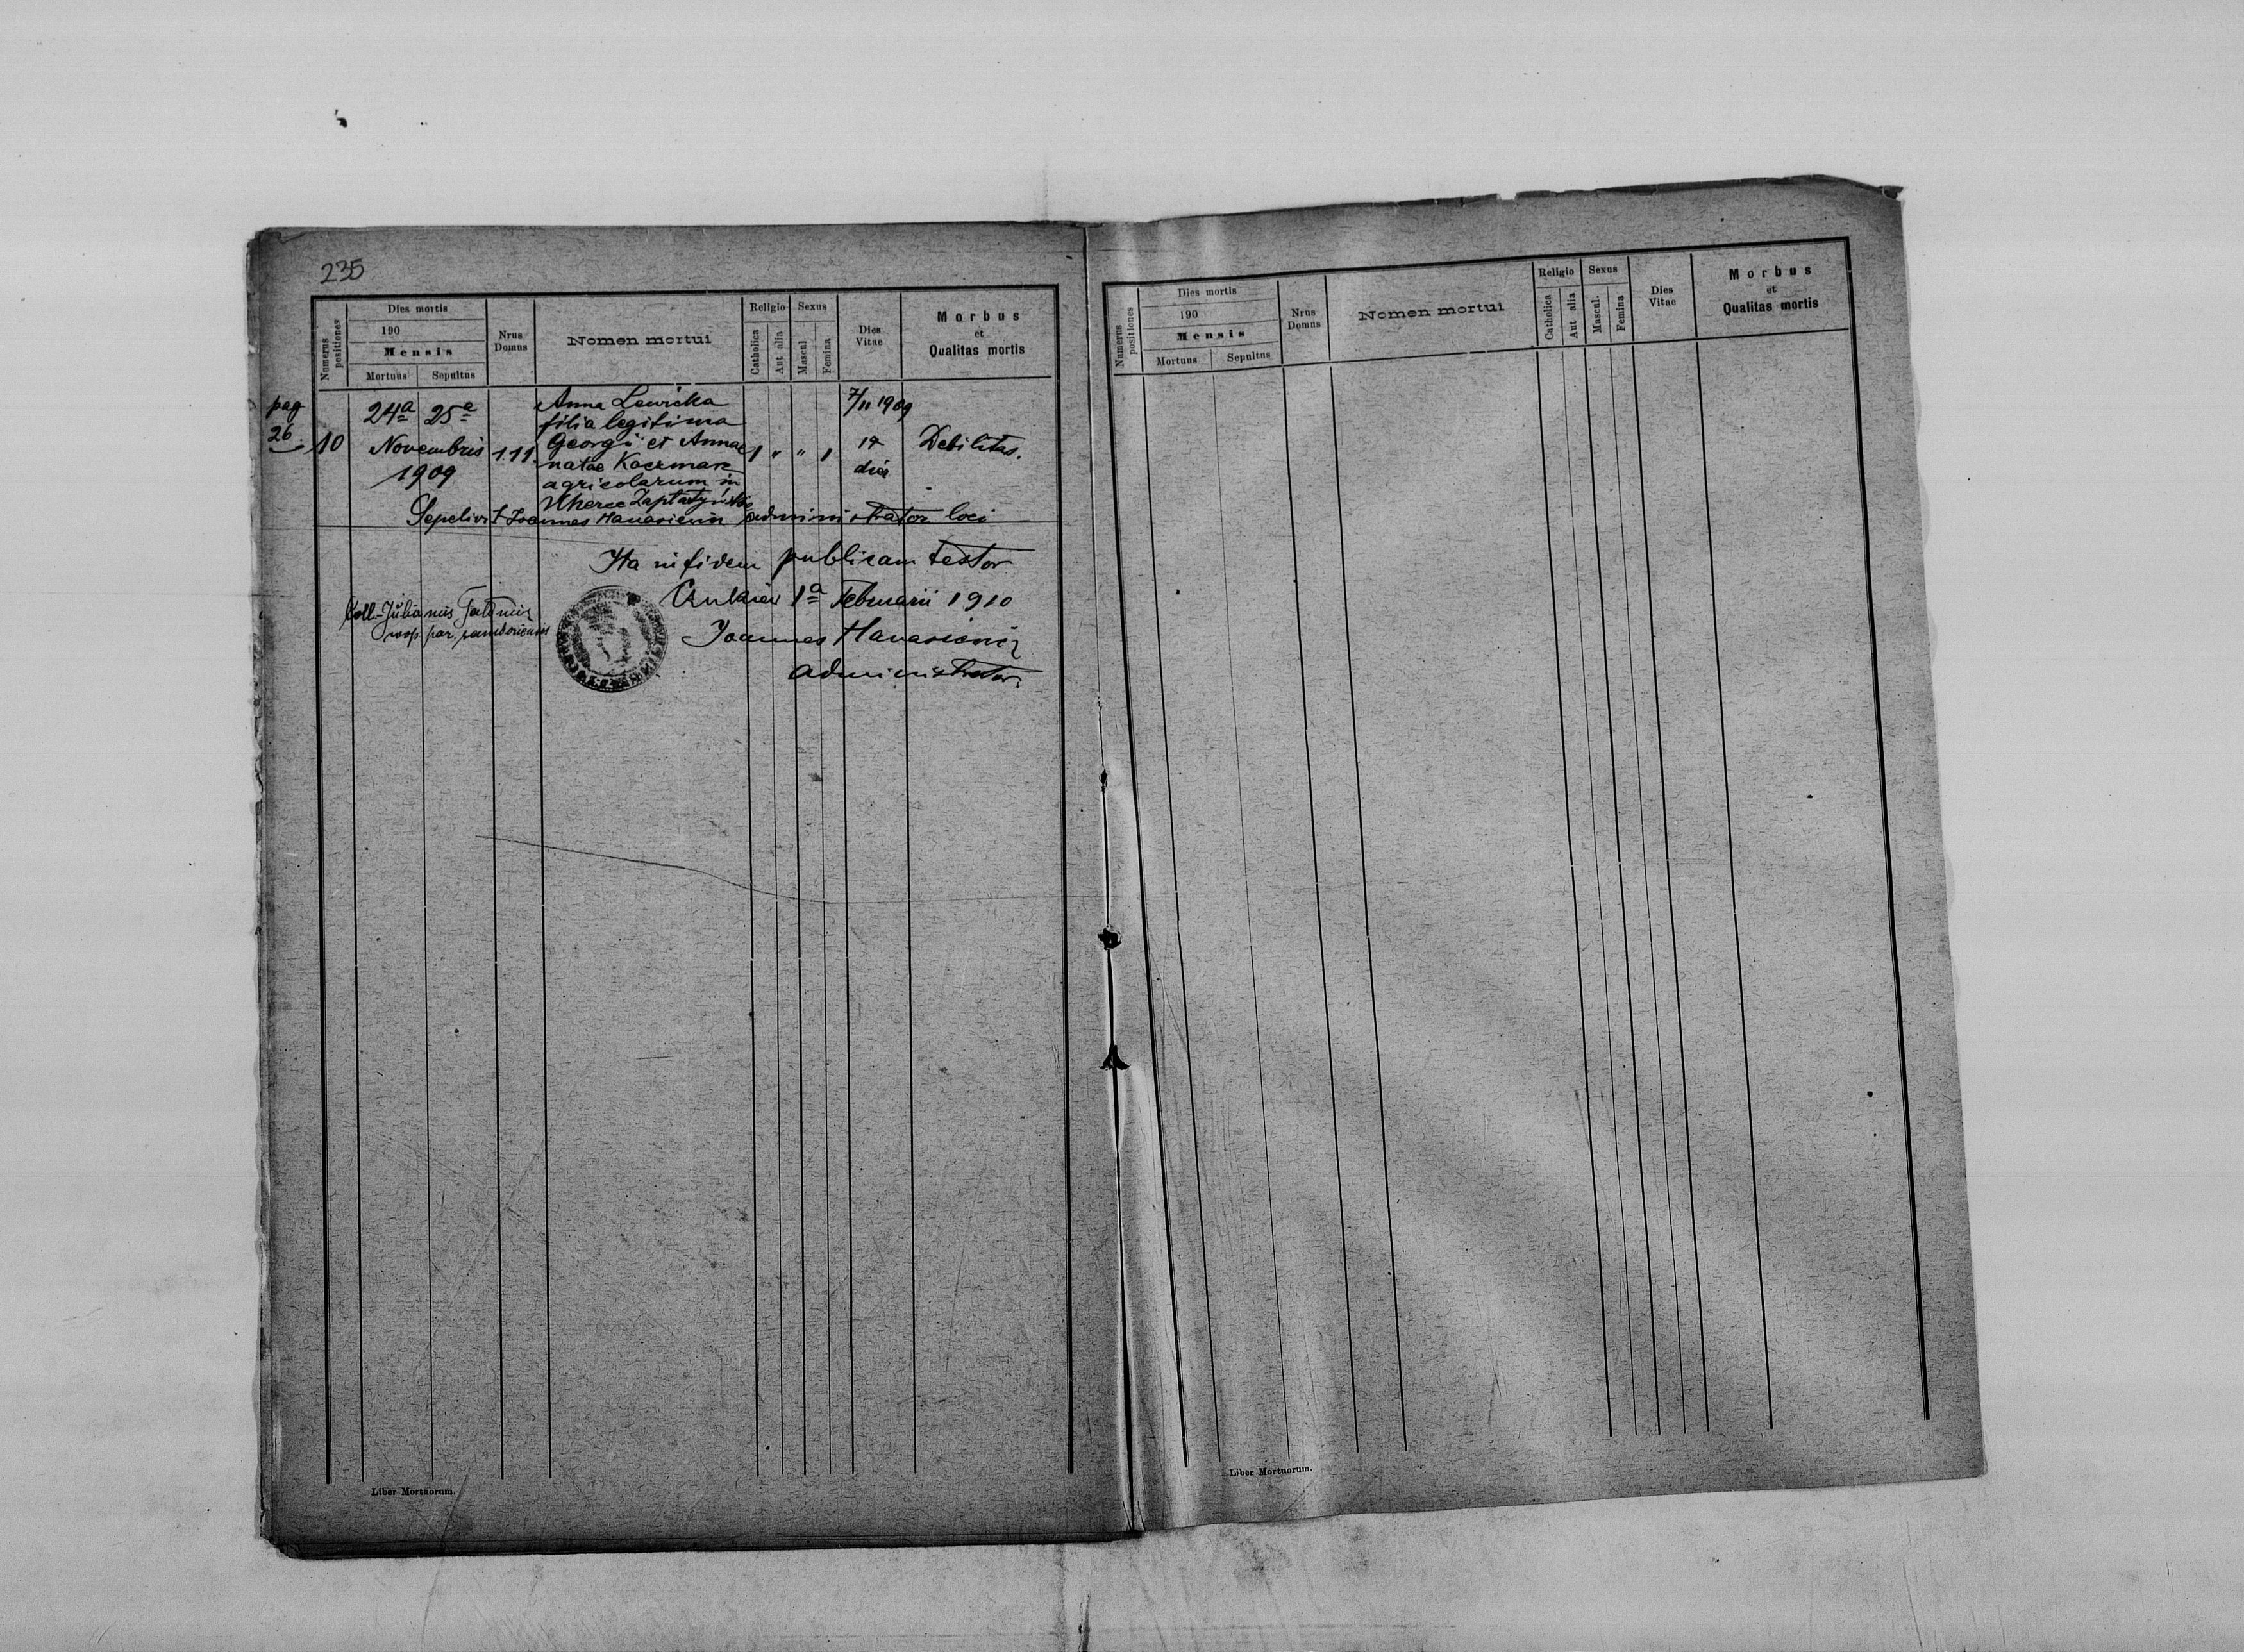 235
Numerus positiones
Dies mortis
190
Mensis
Mortuus
Sepultus
Nrus Domus
Nomen mortui
Religio
Catholica
Aut alia
Sexus
Mascul.
Femina
Dies Vitae
Morbus
et
Qualitas mortis
pag
26
10
24a 25a
Novembris
1909
111.
Anna Lewicka
filia legitima
Georgii et Annae
natae Kaczmar
agricolarum in
Uherce Zapłatyńskie
1 " " 1
7/11 1909
17
dies
Debilitas.
Sepelivit Joannes Hanasiewicz administrator loci
Ita in fidem publicam testor
1a Februarii 1910
Joannes Hanasiewicz
administrator.
Coll. Julianus
coop. par.
Liber Mortuorum.
Numerus positiones
Dies mortis
190
Mensis
Mortuus
Sepultus
Nrus Domus
Nomen mortui
Religio
Catholica
Aut alia
Sexus
Mascul.
Femina
Dies Vitae
Morbus
et
Qualitas mortis
Liber Mortuorum.